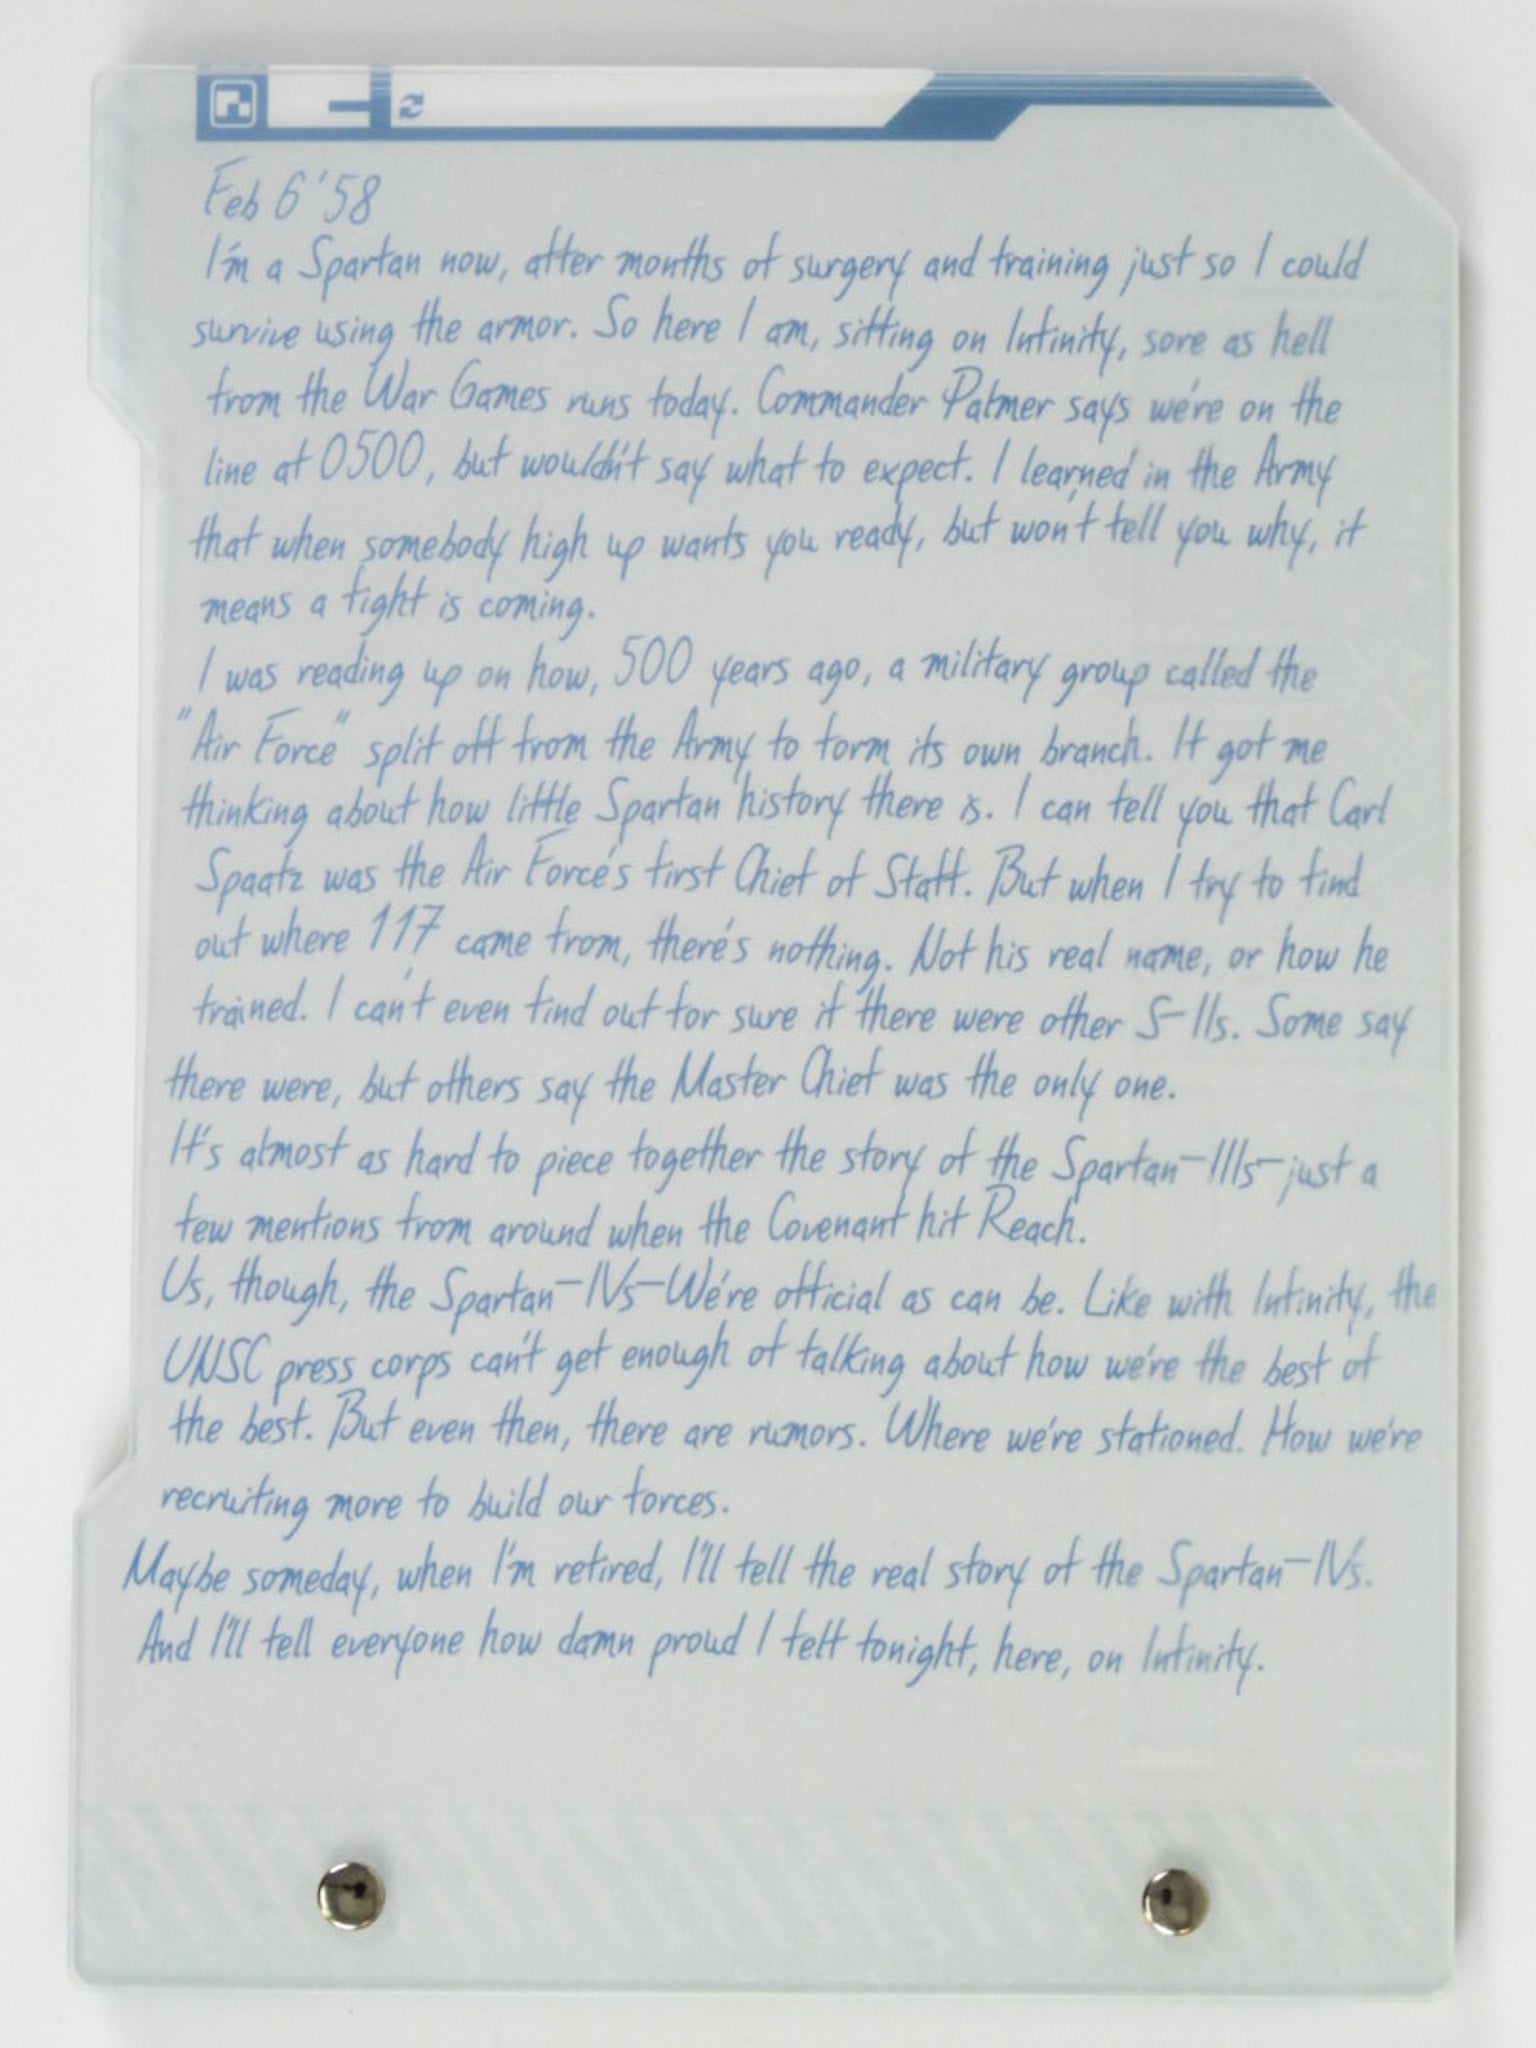 Feb 6 '58
I'm a Spartan now, after months of surgery and training just so I could
survive using the armor. So here I am, sitting on Infinity, sore as hell
from the War Games runs today. Commander Palmer says we're on the
line at 0500, but wouldn't say what to expect. I learned in the Army
that when somebody high up wants you ready, but won't tell you why, it
means a fight is coming.
I was reading up on how, 500 years ago, a military group called the
"Air Force" split off from the Army to form its own branch. It got me
thinking about how little Spartan history there is. I can tell you that Carl
Spaatz was the Air Force's first Chief of Staff. But when I try to find
out where 117 came from, there's nothing. Not his real name, or how he
trained. I can't even find out for sure if there were other S-IIs. Some say
there were, but others say the Master Chief was the only one.
It's almost as hard to piece together the story of the Spartan-IIIs-just a
few mentions from around when the Covenant hit Reach.
Us, though, the Spartan-IVs-We're official as can be. Like with Infinity, the
UNSC press corps can't get enough of talking about how we're the best of
the best. But even then, there are rumors. Where we're stationed. How we're
recruiting more to build our forces.
Maybe someday, when I'm retired, I'll tell the real story of the Spartan-IVs.
And I'll tell everyone how damn proud I felt tonight, here, on Infinity.